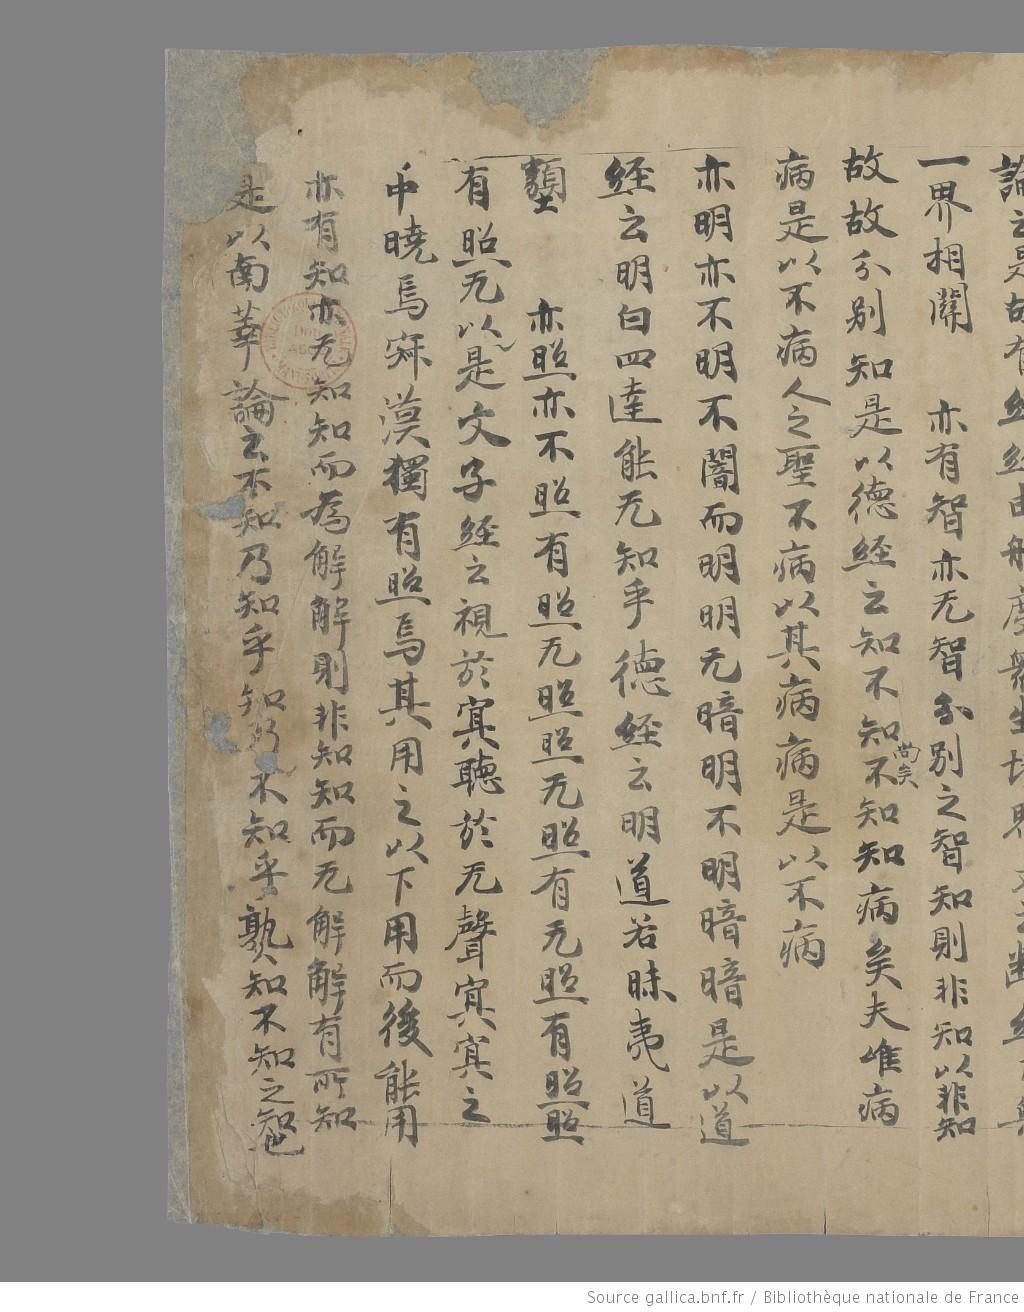 一界相關 亦有智亦无智分別之智知則非知以非知
故故分別知是以德經云知不知尚矣不知知病矣夫唯病
病是以不病人之聖不病以其病病是以不病
亦明亦不明不闇而明明无暗明不明暗暗是以道
經云明白四達能无知乎德經云明道若昧夷道
類 亦照亦不照有照无照照无照有无照有照照
有照无以是文子經云視於冥聽於无聲冥冥之
中曉焉寂漠獨有照焉其用之以不用而後能用
亦有知亦无知知而為解解則非知知而无解解有所知
是以南華論云不知乃知乎知乃不知乎孰知不知之知
Source gallica.bnf.fr / Bibliothèque nationale de France